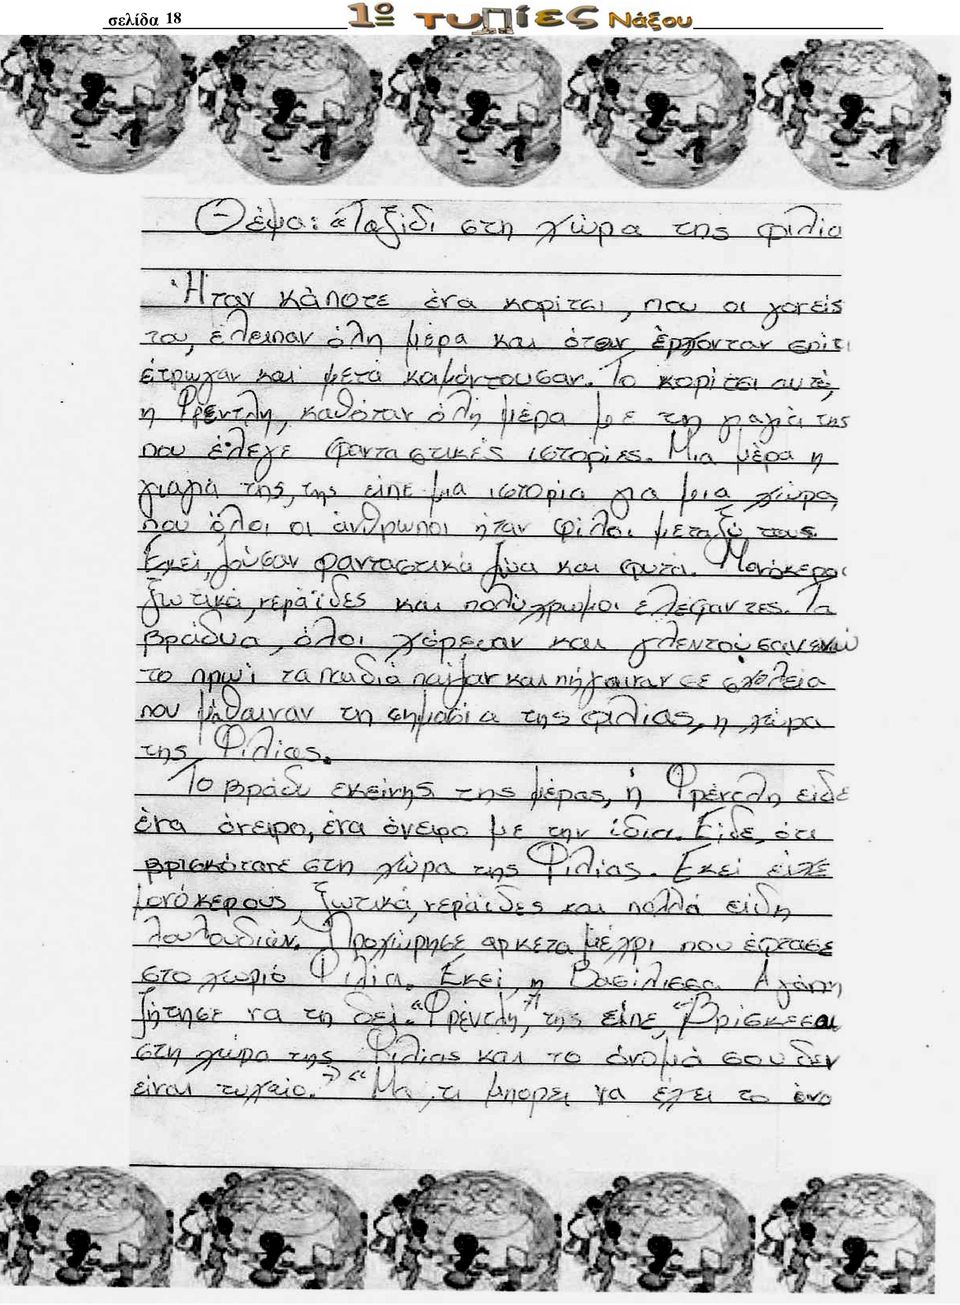 σελίδα 18
1ο τυπίες Νάξου
Θέμα: «Ταξίδι στη χώρα της φιλία
Ήταν κάποτε ένα κορίτσι, που οι γονείς
του, έλειπαν όλη μέρα και όταν έρχονταν σπίτι
έτρωγαν και μετά κοιμόντουσαν. Το κορίτσι αυτό,
η Φρέντλη, καθόταν όλη μέρα με τη γιαγιά της
που έλεγε φανταστικές ιστορίες. Μια μέρα η
γιαγιά της, της είπε μια ιστορία για μια χώρα,
που όλοι οι άνθρωποι ήταν φίλοι μεταξύ τους.
Εκεί, ζούσαν φανταστικά ζώα και φυτά. Μονόκεροι
ξωτικά, νεράϊδες και πολύχρωμοι ελέφαντες. Τα
βράδυα, όλοι χόρευαν και γλεντούσαν ενώ
το πρωί τα παιδιά παίζαν και πήγαιναν σε σχολεία
που μάθαιναν τη σημασία της φιλίας, η χώρα
της Φιλίας.
Το βράδυ εκείνης της μέρας, η Φρέντλη είδε
ένα όνειρο, ένα όνειρο με την ίδια. Είδε, ότι
βρισκότανε στη χώρα της Φιλίας. Εκεί είχε
μονόκερους, ξωτικά, νεράϊδες και πολλά είδη
λουλουδιών. Προχώρησε αρκετά μέχρι που έφτασε
στο χωριό Φιλία. Εκεί, η Βασίλισσα Αγάπη
ζήτησε να τη δει. "Φρέντλη", της είπε, "Βρίσκεσαι
στη χώρα της Φιλίας και το όνομά σου δεν
είναι τυχαίο." "Μα, τι μπορεί να έχει το όνο